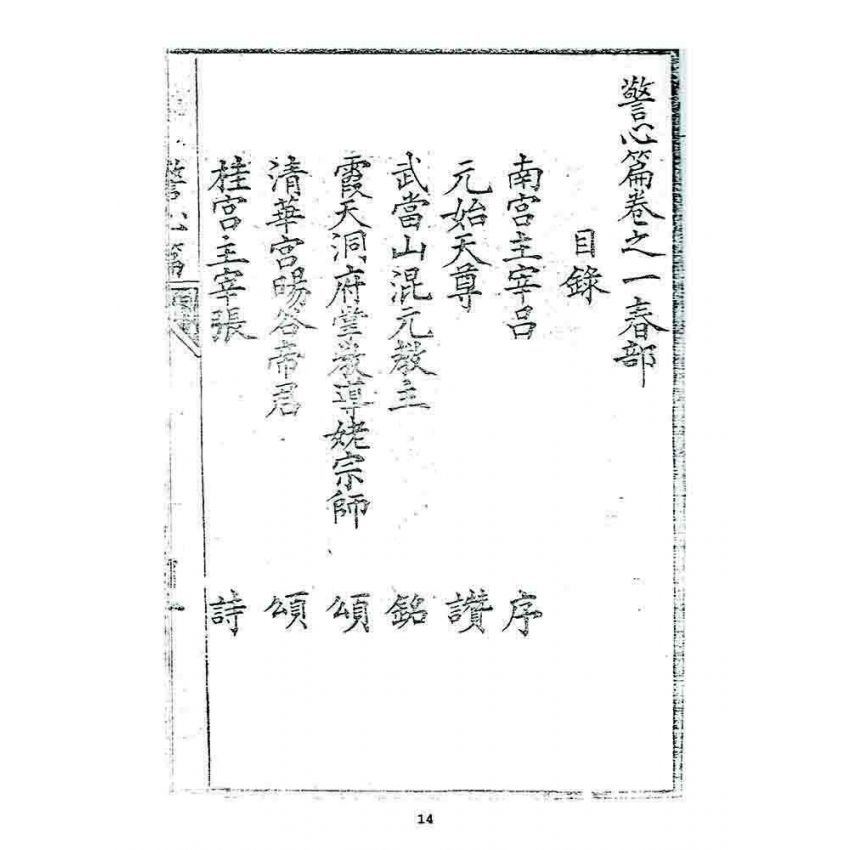 警心篇卷之一春部
目錄
南宮主宰呂 序
元始天尊 讚
武當山混元教主 銘
霞天洞府堂教導姥宗師 頌
清華宮暘谷帝君 頌
桂宮主宰張 詩
警心篇
一
14